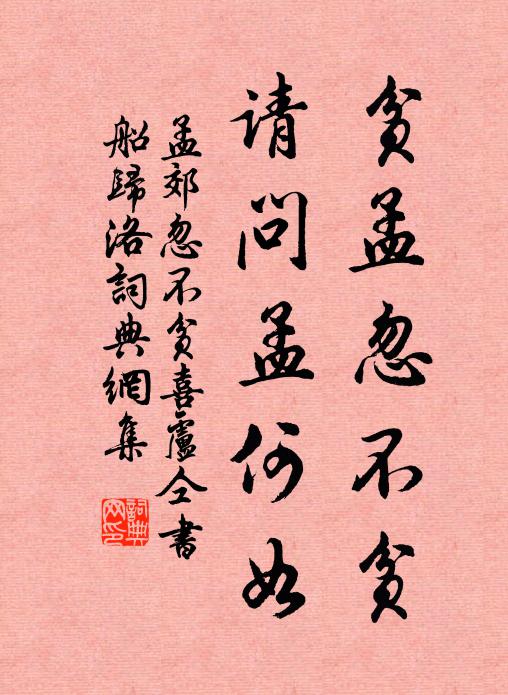 贫孟忽不贫
请问孟何如
孟郊忽不贫喜盧仝書
船歸洛詞典網集
詞典网印